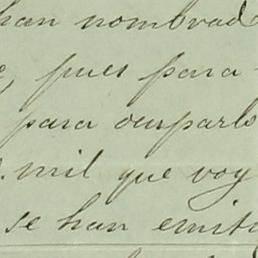 han nombrad
, pues para
para ocuparlo
. mil que voy
se han emiti